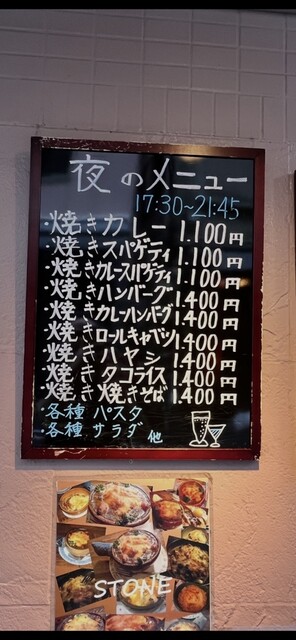 夜のメニュー
17:30~21:45
・焼きカレー 1.100円
・焼きスパゲティ 1.100円
・焼きカレースパゲティ 1.100円
・焼きハンバーグ 1.400円
・焼きカレーハンバーグ 1.400円
・焼きロールキャベツ 1.400円
・焼きハヤシ 1.400円
・焼きタコライス 1.400円
・焼き焼きそば 1.400円
・各種 パスタ
・各種 サラダ 他
STONE